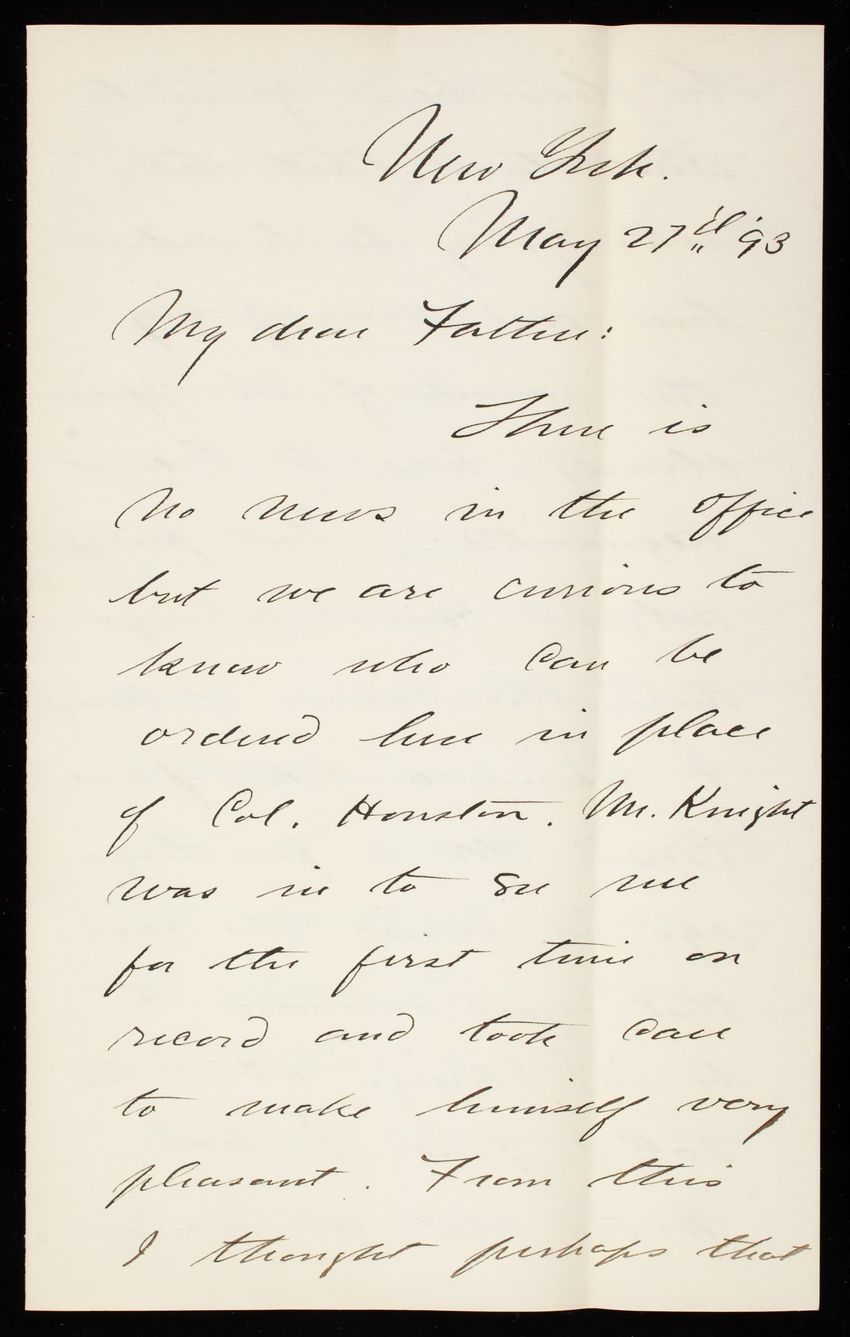 New York.
May 27th '93
My dear Father:
There is
no news in the office
but we are curious to
know who can be
ordered here in place
of Col. Houston. Mr. Knight
was in to see me
for the first time on
record and took care
to make himself very
pleasant. From this
I thought perhaps that